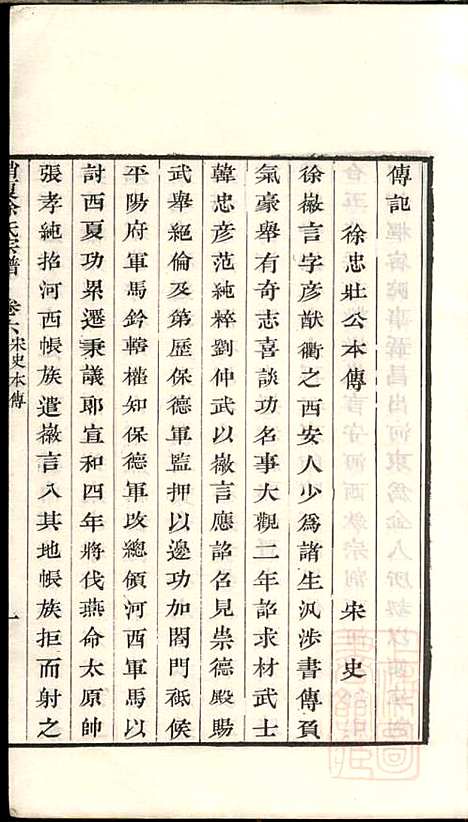 傳記
徐忠壯公本傳 宋史
徐徽言字彥猷衢之西安人少為諸生汎涉書傳負
氣豪舉有奇志喜談功名事大觀二年詔求材武士
韓忠彥范純粹劉仲武以徽言應詔名見崇德殿賜
武舉絕倫及第歷保德軍監押以邊功加閤門祗候
平陽府軍馬鈐轄權知保德軍改總領河西軍馬以
討西夏功累遷秉議郎宣和四年將伐燕命太原帥
張孝純招河西帳族遣徽言入其地帳族拒而射之
徐氏宗譜 卷六 宋史本傳 一